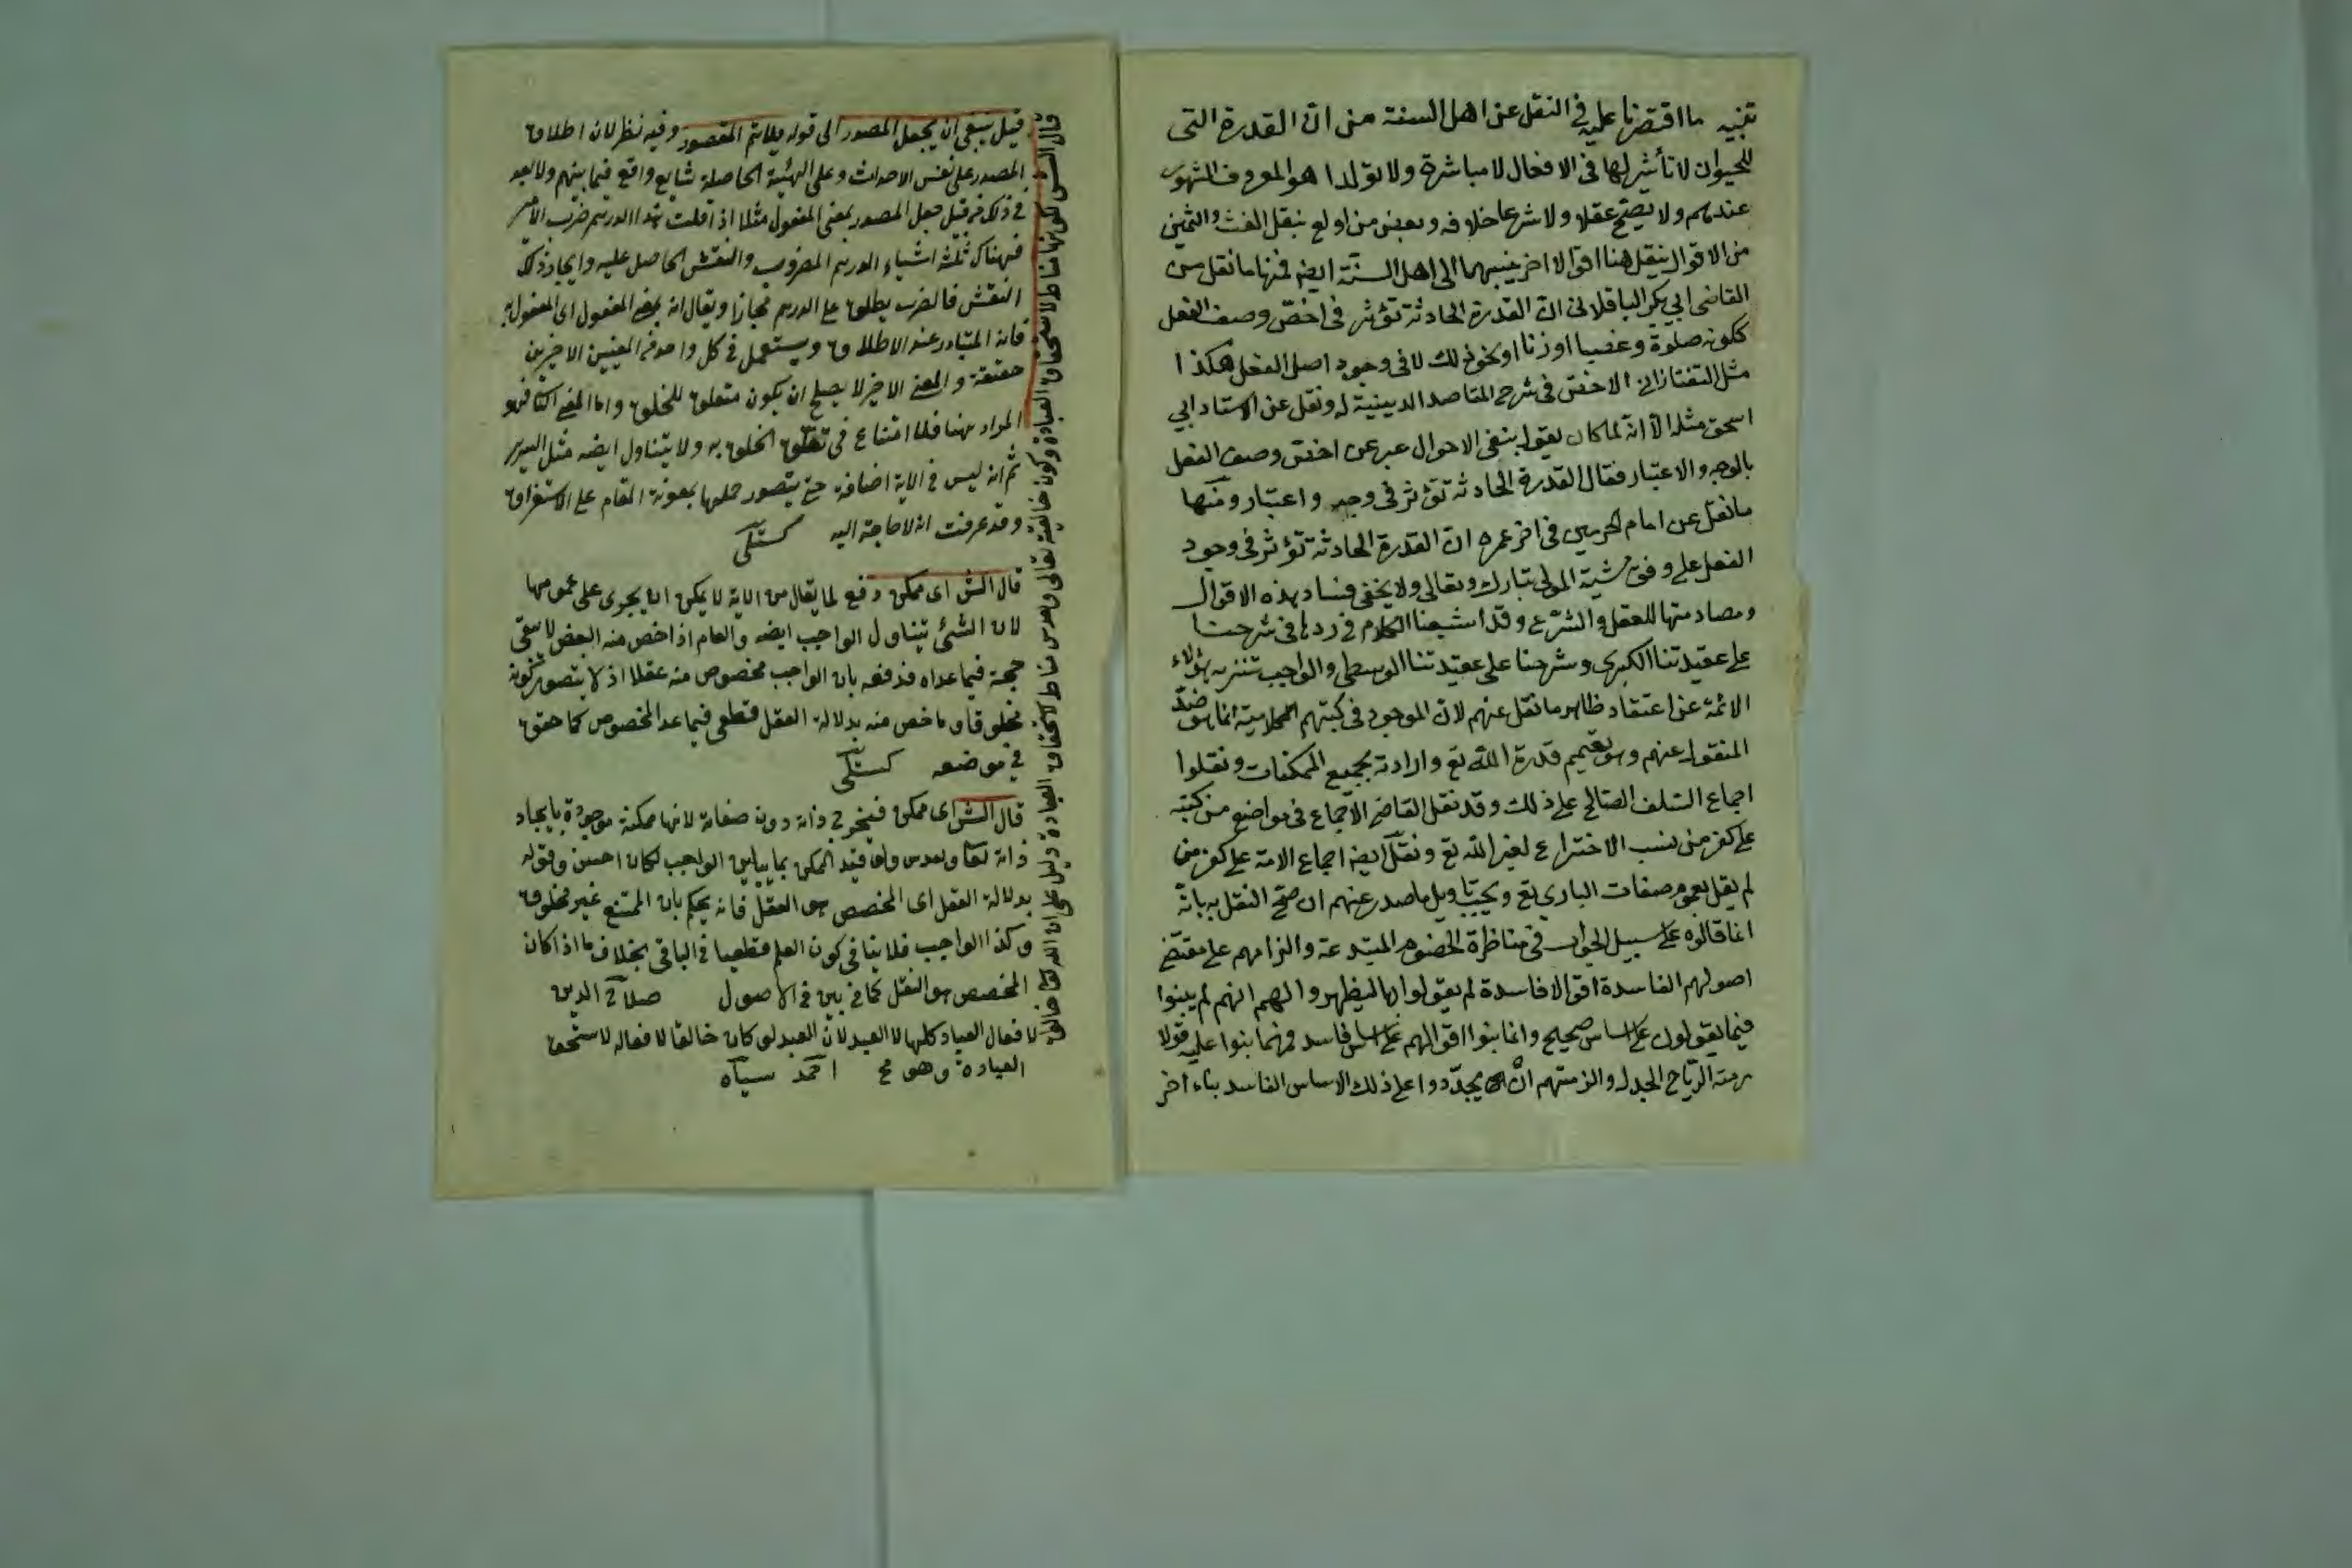 تنبيه ما اقتصرنا عليه في النقل عن اهل السنة من ان القدرة التى
للحيوان لا تأثير لها فى الافعال لا مباشرة ولا تولدا هو المعروف المشهور
عندهم ولا يصح عقلا ولا شرعا خلافه وبعض من اولع بنقل الغث والثمين
من الاقوال ينقل هنا اقوالا اخر ينسبها الى اهل السنة ايضه فمنها ما نقل من
القاضى ابي بكر الباقلانى ان القدرة الحادثة تؤثر فى اخص وصف الفعل
ككونه صلوة وغصبا او زنا او نحو ذلك لا فى وجود اصل الفعل هكذا
مثل التفتازانى الاخص فى شرح المقاصد الدينية له ونقل عن الاستاد ابي
اسحق مثله الا انه لما كان يقول بنفى الاحوال عبر عن اخص وصف الفعل
بالوجه والاعتبار فقال القدرة الحادثة تؤثر فى وجه واعتبار ومنها
ما نقل عن امام الحرمين فى اخر عمره ان القدرة الحادثة تؤثر فى وجود
الفعل على وفق مشية المولى تبارك وتعالى ولا يخفى فساد هذه الاقوال
ومصادمتها للعقل والشرع وقد اشبعنا الكلام فى ردها فى شرحنا
على عقيدتنا الكبرى وشرحنا على عقيدتنا الوسطى والواجب تنزيه هؤلاء
الائمة عن اعتقاد ظاهر ما نقل عنهم لان الموجود فى كتبهم الكلامية انما هو ضد
المنقول عنهم وهو تعميم قدرة الله تع وارادته لجميع الممكنات ونقلوا
اجماع السلف الصالح على ذلك وقد نقل القاضى الاجماع فى مواضع من كتبه
على كفر من نسب الاختراع لغير الله تع ونقل ايضه اجماع الامة على كفر من
لم يقل بعموم صفات الباري تع ويجب تاويل ما صدر عنهم ان صح النقل به بانه
انما قالوه على سبيل الجواب فى مناظرة الخصوم المبتدعة والزامهم على مقتضى
اصولهم الفاسدة اقوالا فاسدة لم يقولوا بها ليظهروا لهم انهم لم يبنوا
فيما يقولون على اساس صحيح وانما بنوا اقوالهم على اساس فاسد فمهما بنوا عليه قولا
رمته الرياح الجدل والزمتهم ان يجددوا على ذلك الاساس الفاسد بناء اخر
قيل ينبغى ان يجعل المصدر الى قوله فلا يتم المقصود وفيه نظر لان اطلاق
المصدر على نفس الاحداث وعلى الهيئة الحاصلة شايع واقع فيما بينهم ولا بعد
في ذلك من قبل جعل المصدر بمعنى المفعول مثلا اذا قلت هذا الدرهم ضرب الامير
فهناك ثلثة اشياء الدرهم المضروب والنقش الحاصل عليه وايجاد ذلك
النقش فالضرب يطلق على الدرهم مجازا ويقال انه بمعنى المفعول اى المفعول به
فانه المتبادر عند الاطلاق ويستعمل فى كل واحد من المعنيين الاخيرين
حقيقة والمعنى الاخير لا يصلح ان يكون متعلق للخلق واما المعنى الثانى فهو
المراد ههنا فلا امتناع فى تعلق الخلق به ولا يتناول ايضه مثل السرير
ثم انه ليس فى الاية اضافة حتى يتصور حملها بمعونة المقام على الاستغراق
وقد عرفت انه لا حاجة اليه كستلى
قال الش اى ممكن دفع لما يقال من الاية لا يمكن ان يجرى على عمومها
لان الشئ يتناول الواجب ايضه والعام اذا خص منه البعض لا يبقى
حجة فيما عداه فدفعه بان الواجب مخصوص منه عقلا اذ لا يتصور كونه
مخلوقا وما خص منه بدلالة العقل قطعى فيما عدا المخصوص كما حقق
في موضعه كستلى
قال الش اى ممكن فيخرج ذاته دون صفاته لانها ممكنة موجودة بايجاد
ذاته تعا وتقدس ولو قيد الممكن بما يباين الواجب لكان احسن وقوله
بدلالة العقل اى المخصص هو العقل فانه يحكم بان الممتنع غير مخلوق
وكذا الواجب فلا ينافى كون العلم قطعيا فى الباقى بخلاف ما اذا كان
المخصص هو النقل كما بين فى الاصول صلاح الدين
قال الش لكونها مناط لاستحقاق العبادة وكون خالقيته تعالى وتقدس مناط لاستحقاق العبادة دليل على ان الله تعا خالق
لافعال العباد كلها لا العبد لان العبد لو كان خالقا لافعاله لاستحق
العبادة وهو مح احمد سياه